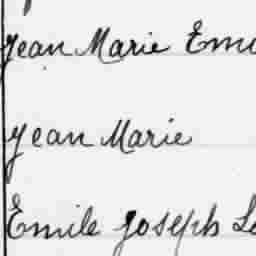 Jean Marie Emi
Jean Marie
Emile Joseph Lo